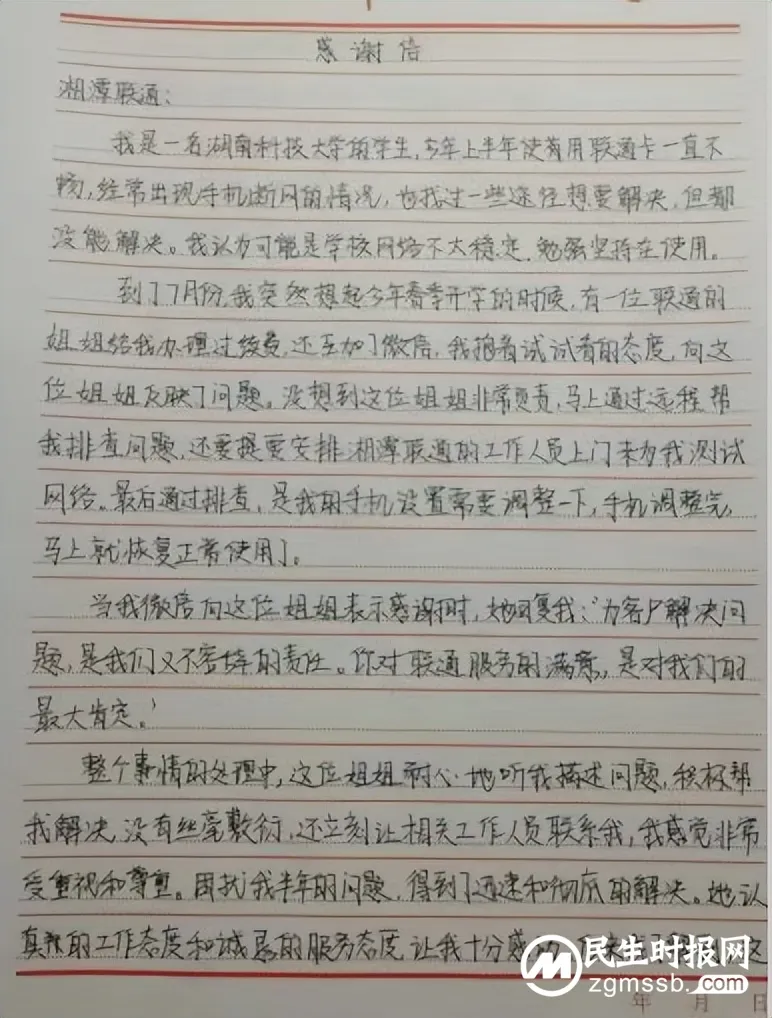 感谢信
湘潭联通：
我是一名湖南科技大学的学生，今年上半年使用联通卡一直不
畅，经常出现手机断网的情况，也找过一些途径想要解决，但都
没能解决。我认为可能是学校网络不太稳定，勉强坚持在使用。
到了7月份，我突然想起今年春季开学的时候，有一位联通的
姐姐给我办理过缴费，还互加了微信，我抱着试试看的态度，向这
位姐姐反映了问题。没想到这位姐姐非常负责，马上通过远程帮
我排查问题，还要提要安排湘潭联通的工作人员上门来为我测试
网络。最后通过排查，是我的手机设置需要调整一下，手机调整完，
马上就恢复正常使用了。
当我微信向这位姐姐表示感谢时，她回复我：“为客户解决问
题，是我们义不容辞的责任。你对联通服务的满意，是对我们的
最大肯定。”
整个事情的处理中，这位姐姐耐心地听我描述问题，积极帮
我解决，没有丝毫敷衍，还立刻让相关工作人员联系我，我感觉非常
受重视和尊重。困扰我半年的问题，得到了迅速和彻底的解决。她认
真的工作态度和诚恳的服务态度，让我十分感动
民生时报网
zgmssb.com
年 月 日